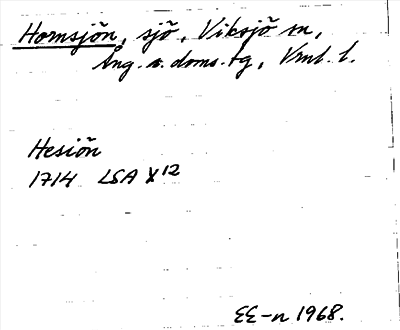 Hornsjön, sjö, Viksjö sn,
Ång. s. doms. tg, Vrnl. l.
Hesiön
1714 LSA X12
EE-n 1968.